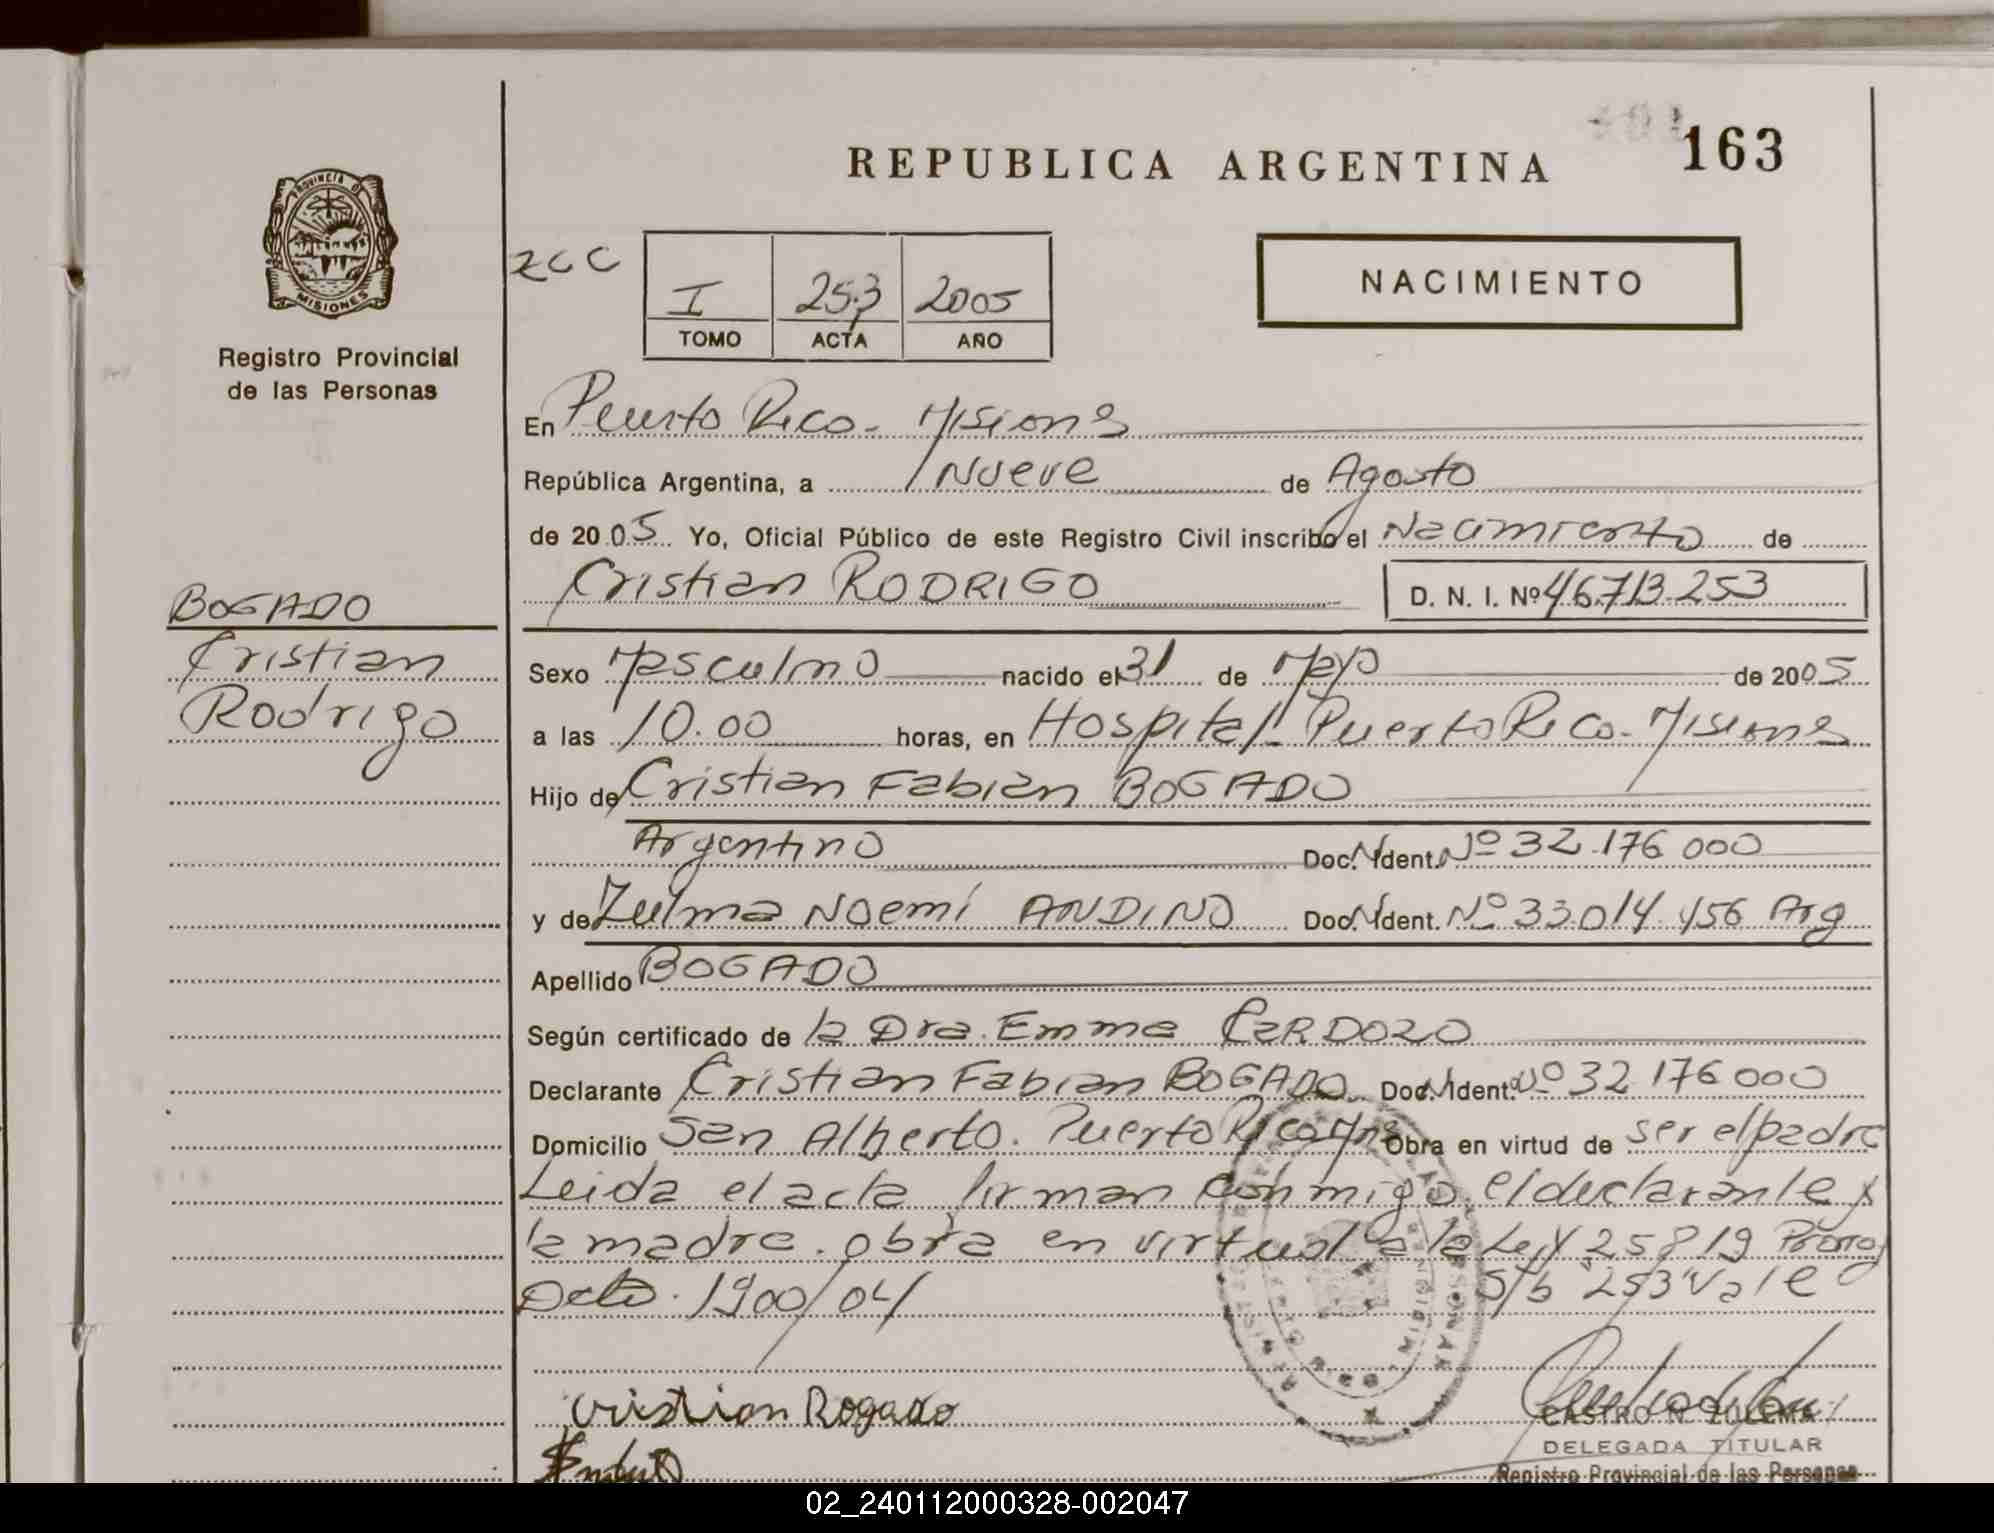 REPUBLICA ARGENTINA
163
PROVINCIA D
MISIONES
Registro Provincial
de las Personas
ZCC
I 253 2005
TOMO ACTA AÑO
NACIMIENTO
En Puerto Rico - Misiones
República Argentina, a Nueve de Agosto
de 2005 Yo, Oficial Público de este Registro Civil inscribo el Nacimiento de
Cristian RODRIGO D. N. I. Nº 46.713.253
BOGADO
Cristian
Rodrigo
Sexo Masculino nacido el 31 de Mayo de 2005
a las 10.00 horas, en Hospital Puerto Rico - Misiones
Hijo de Cristian Fabian BOGADO
Argentino Doc. Ident. Nº 32.176.000
y de Zulma Noemí ANDINO Doc. Ident. Nº 33.014.456 Arg
Apellido BOGADO
Según certificado de la Dra. Emma CARDOZO
Declarante Cristian Fabian BOGADO Doc. Ident. Nº 32 176 000
Domicilio San Alberto. Puerto Rico Mnes Obra en virtud de ser el padre
Leida el acta firman conmigo el declarante y
la madre. obra en virtud a la Ley 25819 Prorrog
Dcto. 1900/04 S/b "253" Vale
Cristian Bogado
CASTRO N. ZULEMA
DELEGADA TITULAR
Registro Provincial de las Personas
02_240112000328-002047